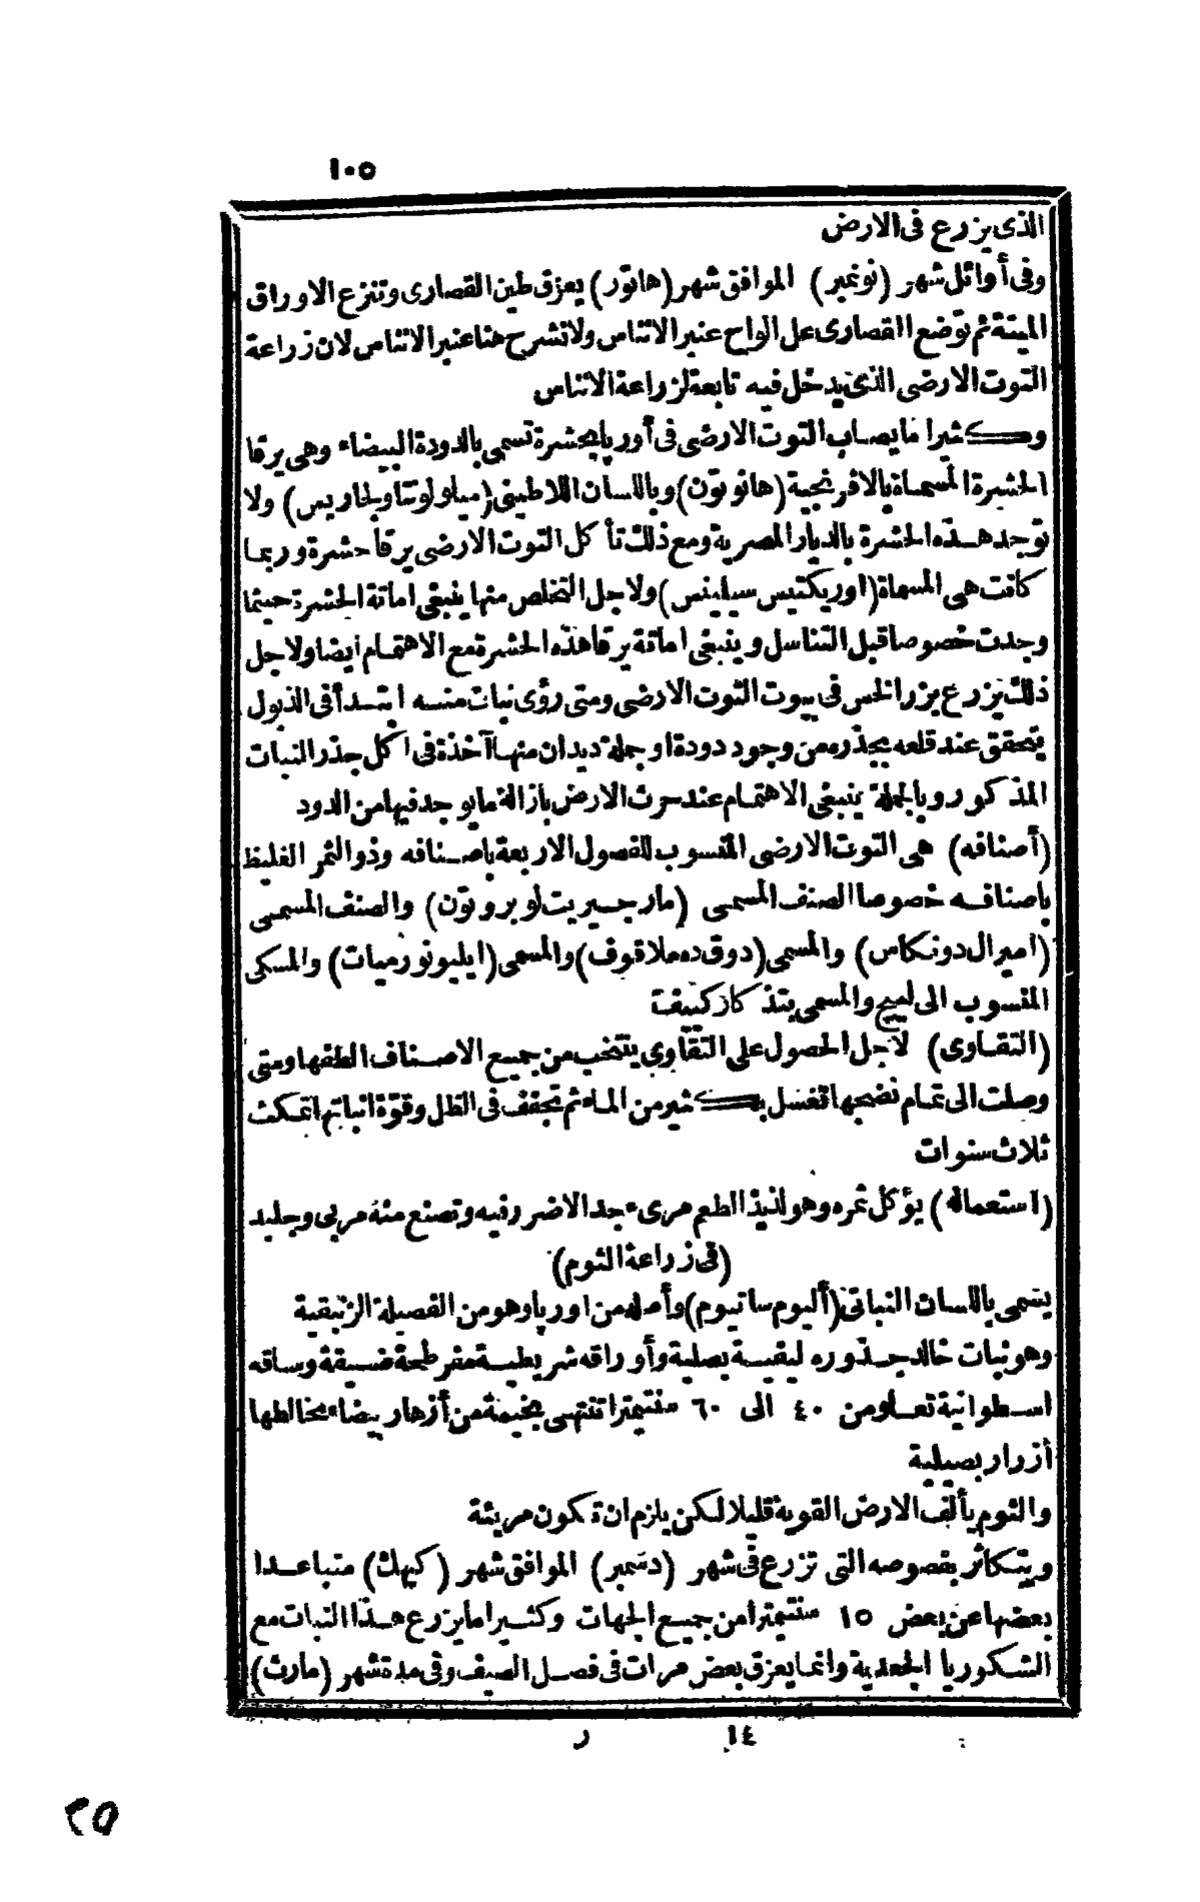 ١٠٥
الذى يزرع فى الارض
وفى أوائل شهر (نونمبر) الموافق شهر (هاتور) يعزق طين القصارى وتنزع الاوراق
الميتة ثم توضع القصارى على الواح عنبر الاناس ولا نشرح هنا عنبر الاناس لان زراعة
التوت الارضى الذى يدخل فيه تابعة لزراعة الاناس
وكثيرا ما يصاب التوت الارضى فى أوروبا بحشرة تسمى بالدودة البيضاء وهى يرقا
الحشرة المسماة بالافرنجية (هانوتون) وباللسان اللاطينى (ميلولونتا ولجاريس) ولا
توجد هذه الحشرة بالديار المصرية ومع ذلك تأكل التوت الارضى يرقا حشرة وربما
كانت هى المسماة (اوريكتيس سيلينس) ولاجل التخلص منها ينبغى اماتة الحشرة حيثما
وجدت خصوصا قبل التناسل وينبغى اماتة يرقا هذه الحشرة مع الاهتمام ايضا ولاجل
ذلك يزرع بزر الخس فى بيوت التوت الارضى ومتى رؤى نبات منه ابتدأ فى الذبول
يتحقق عند قلعه بجذره من وجود دودة او جملة ديدان منها آخذة فى اكل جذر النبات
المذكور وبالجملة ينبغى الاهتمام عند حرث الارض بازالة ما يوجد فيها من الدود
(أصنافه) هى التوت الارضى المنسوب للفصول الاربعة باصنافه وذو الثمر الغليظ
باصنافه خصوصا الصنف المسمى (مارجيريت لوبروتون) والصنف المسمى
(اميرال دونكاس) والمسمى (دوق ده ملاقوف) والمسمى (ايليونورميات) والمسكى
المنسوب الى لييج والمسمى بتذكار كنيفت
(التقاوى) لاجل الحصول على التقاوى ينتخب من جميع الاصناف الطفها ومتى
وصلت الى تمام نضجها تغسل بكثير من الماء ثم تجفف فى الظل وقوة انباتها تمكث
ثلاث سنوات
(استعماله) يؤكل ثمره وهو لذيذ الطعم مرىء جدا لا ضرر فيه وتصنع منه مربى وجليد
(فى زراعة الثوم)
يسمى باللسان النباتى (أليوم ساتيوم) وأصله من اوربا وهو من الفصيلة الزنبقية
وهو نبات خالد جذوره ليفية بصلية وأوراقه شريطية مفرطحة ضيقة وساقه
اسطوانية تعلو من ٤٠ الى ٦٠ سنتيمترا تنتهى بخيمة من أزهار بيضاء مخالطها
أزرار بصيلية
والثوم يألف الارض القوية قليلا لكن يلزم ان تكون مريئة
ويتكاثر بفصوصه التى تزرع فى شهر (دسمبر) الموافق شهر (كيهك) متباعدا
بعضها عن بعض ١٥ سنتيمترا من جميع الجهات وكثيرا ما يزرع هذا النبات مع
الشكوريا الجعدية وانما يعزق بعض مرات فى فصل الصيف وفى مدة شهر (مارث)
١٤ ر
٢٥